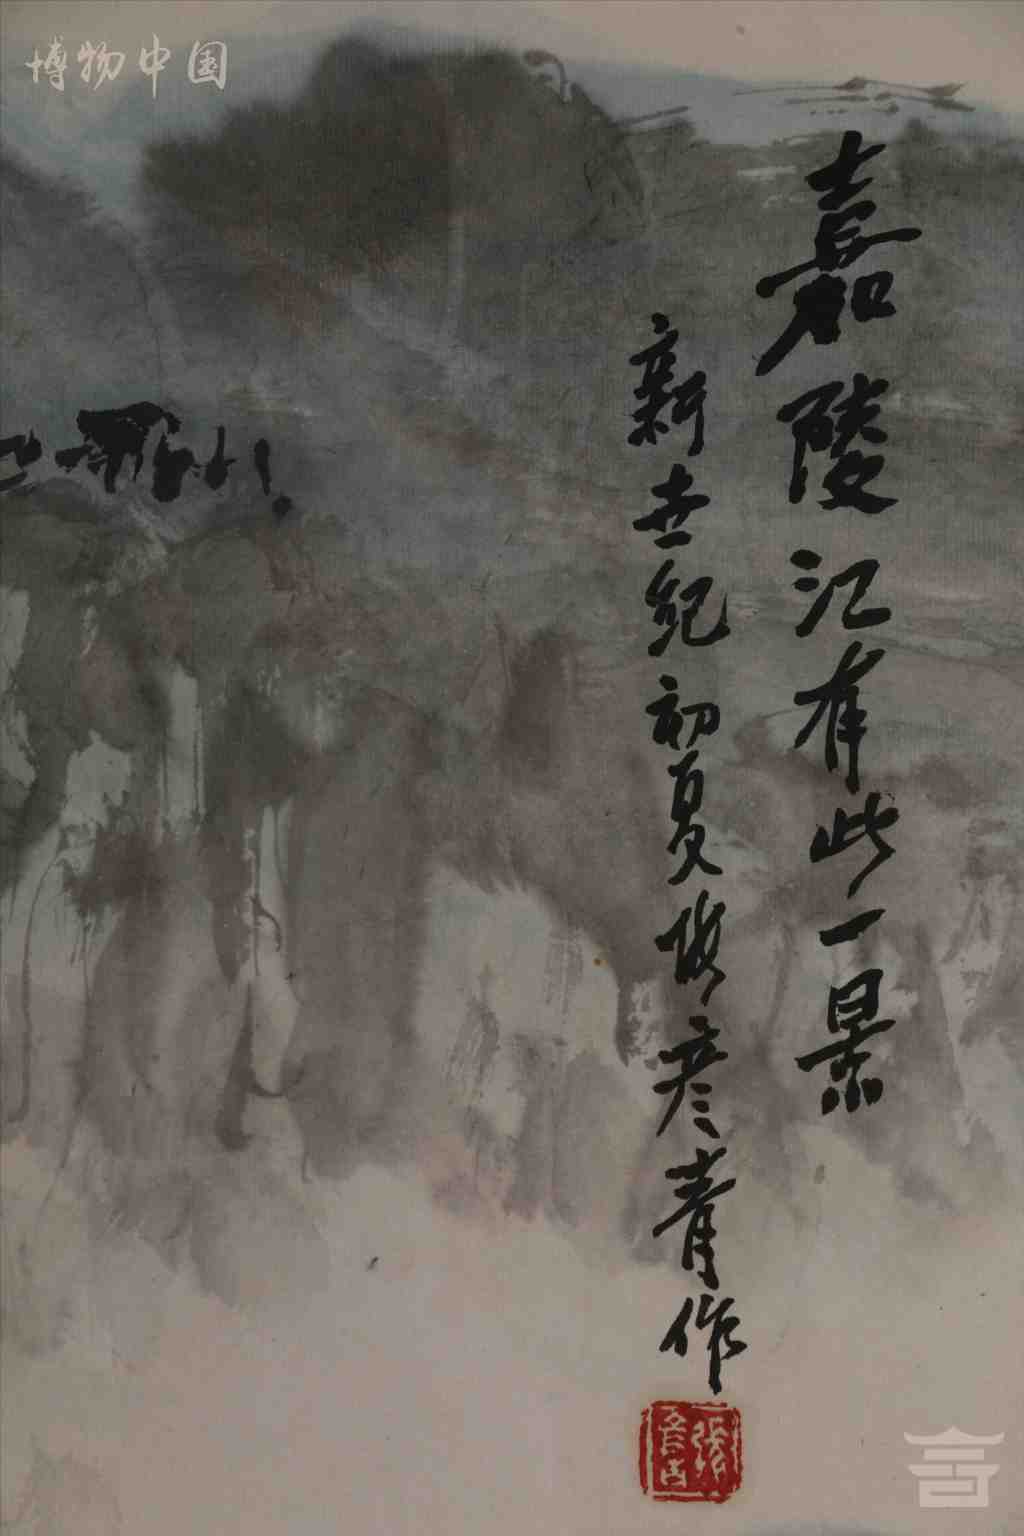 博物中国
嘉陵江有此一景
新世纪初夏张彦青作
張彦青